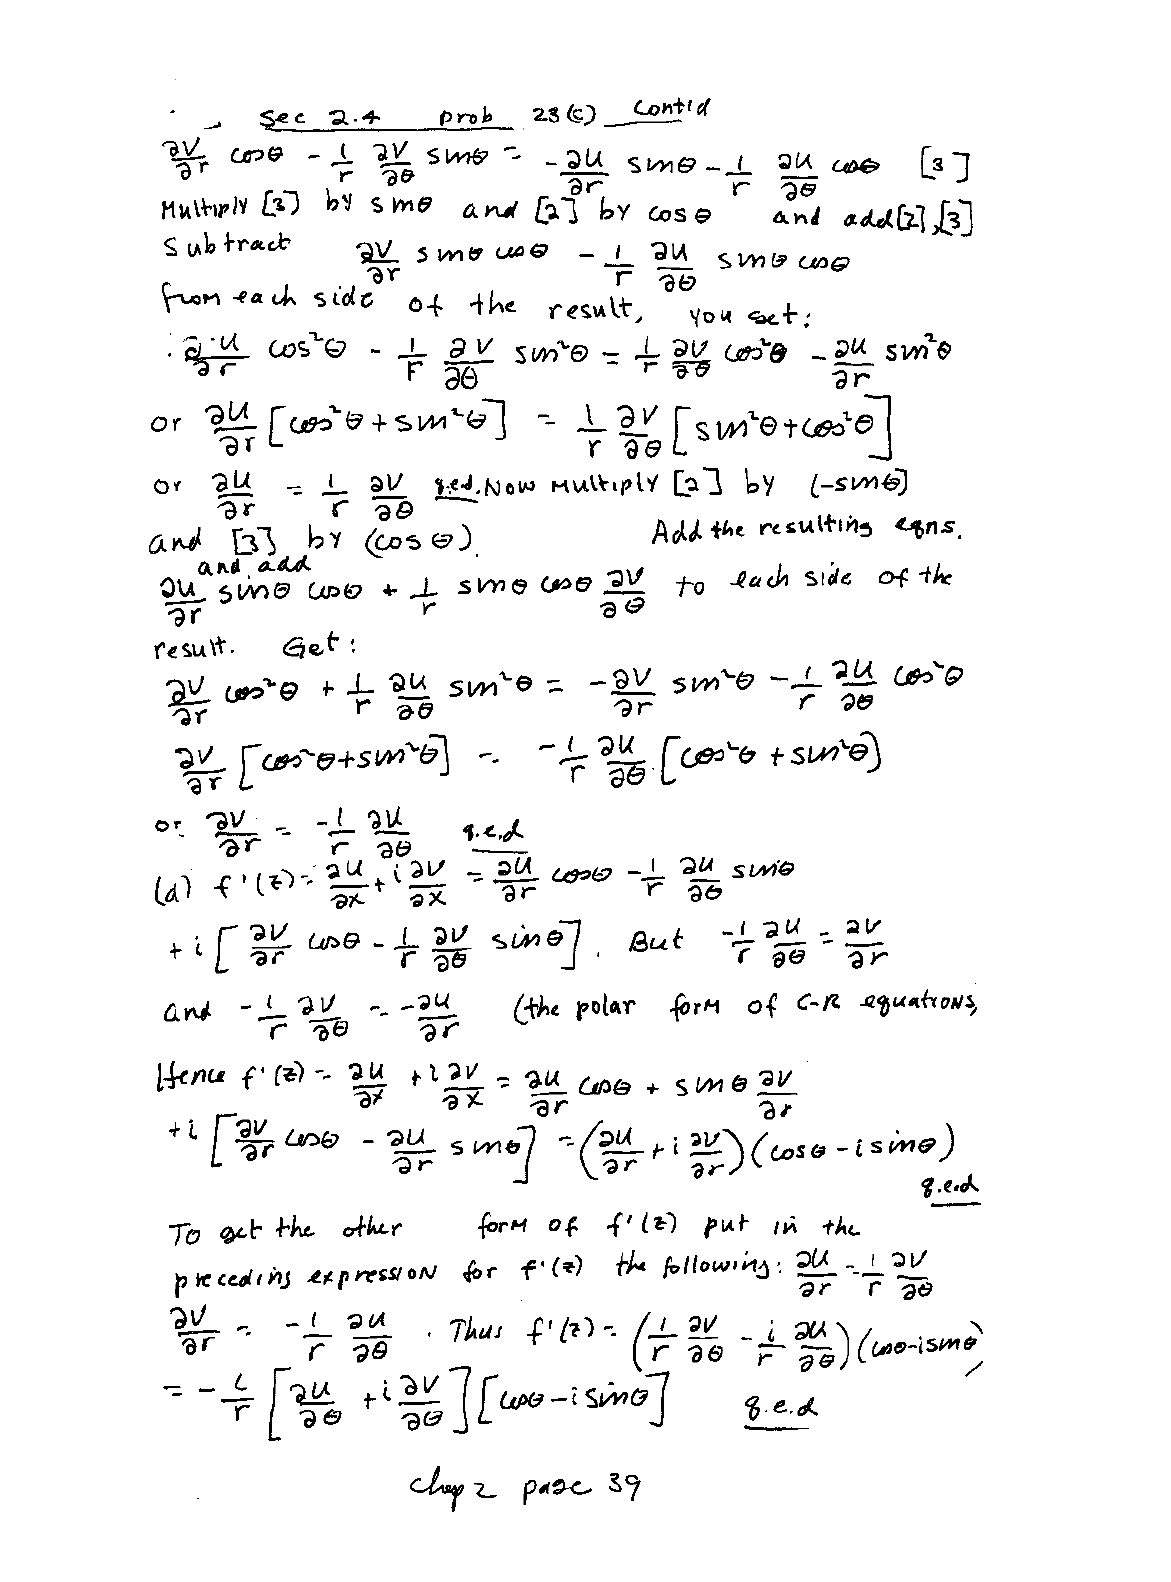 Sec 2.4 prob 23(c) Cont'd
∂v/∂r cosθ - 1/r ∂v/∂θ sinθ = -∂u/∂r sinθ - 1/r ∂u/∂θ cosθ [3]
Multiply [3] by sinθ and [2] by cosθ and add [2],[3]
Subtract ∂v/∂r sinθ cosθ - 1/r ∂u/∂θ sinθ cosθ
from each side of the result, you get:
∂u/∂r cos²θ - 1/r ∂v/∂θ sin²θ = 1/r ∂v/∂θ cos²θ - ∂u/∂r sin²θ
or ∂u/∂r [cos²θ + sin²θ] = 1/r ∂v/∂θ [sin²θ + cos²θ]
or ∂u/∂r = 1/r ∂v/∂θ q.e.d. Now Multiply [2] by (-sinθ)
and [3] by (cosθ). Add the resulting eqns.
and add
∂u/∂r sinθ cosθ + 1/r sinθ cosθ ∂v/∂θ to each side of the
result. Get:
∂v/∂r cos²θ + 1/r ∂u/∂θ sin²θ = -∂v/∂r sin²θ - 1/r ∂u/∂θ cos²θ
∂v/∂r [cos²θ+sin²θ] = -1/r ∂u/∂θ [cos²θ + sin²θ)
or ∂v/∂r = -1/r ∂u/∂θ q.e.d
(d) f'(z) = ∂u/∂x + i ∂v/∂x = ∂u/∂r cosθ - 1/r ∂u/∂θ sinθ
+ i [∂v/∂r cosθ - 1/r ∂v/∂θ sinθ]. But -1/r ∂u/∂θ = ∂v/∂r
and -1/r ∂v/∂θ = -∂u/∂r (the polar form of C-R equations,
Hence f'(z) = ∂u/∂x + i ∂v/∂x = ∂u/∂r cosθ + sinθ ∂v/∂r
+ i [∂v/∂r cosθ - ∂u/∂r sinθ] = (∂u/∂r + i ∂v/∂r)(cosθ - i sinθ)
q.e.d
To get the other form of f'(z) put in the
preceding expression for f'(z) the following: ∂u/∂r = 1/r ∂v/∂θ
∂v/∂r = -1/r ∂u/∂θ. Thus f'(z) = (1/r ∂v/∂θ - i/r ∂u/∂θ)(cosθ - i sinθ)
= -i/r [∂u/∂θ + i ∂v/∂θ][cosθ - i sinθ] q.e.d
chap 2 page 39